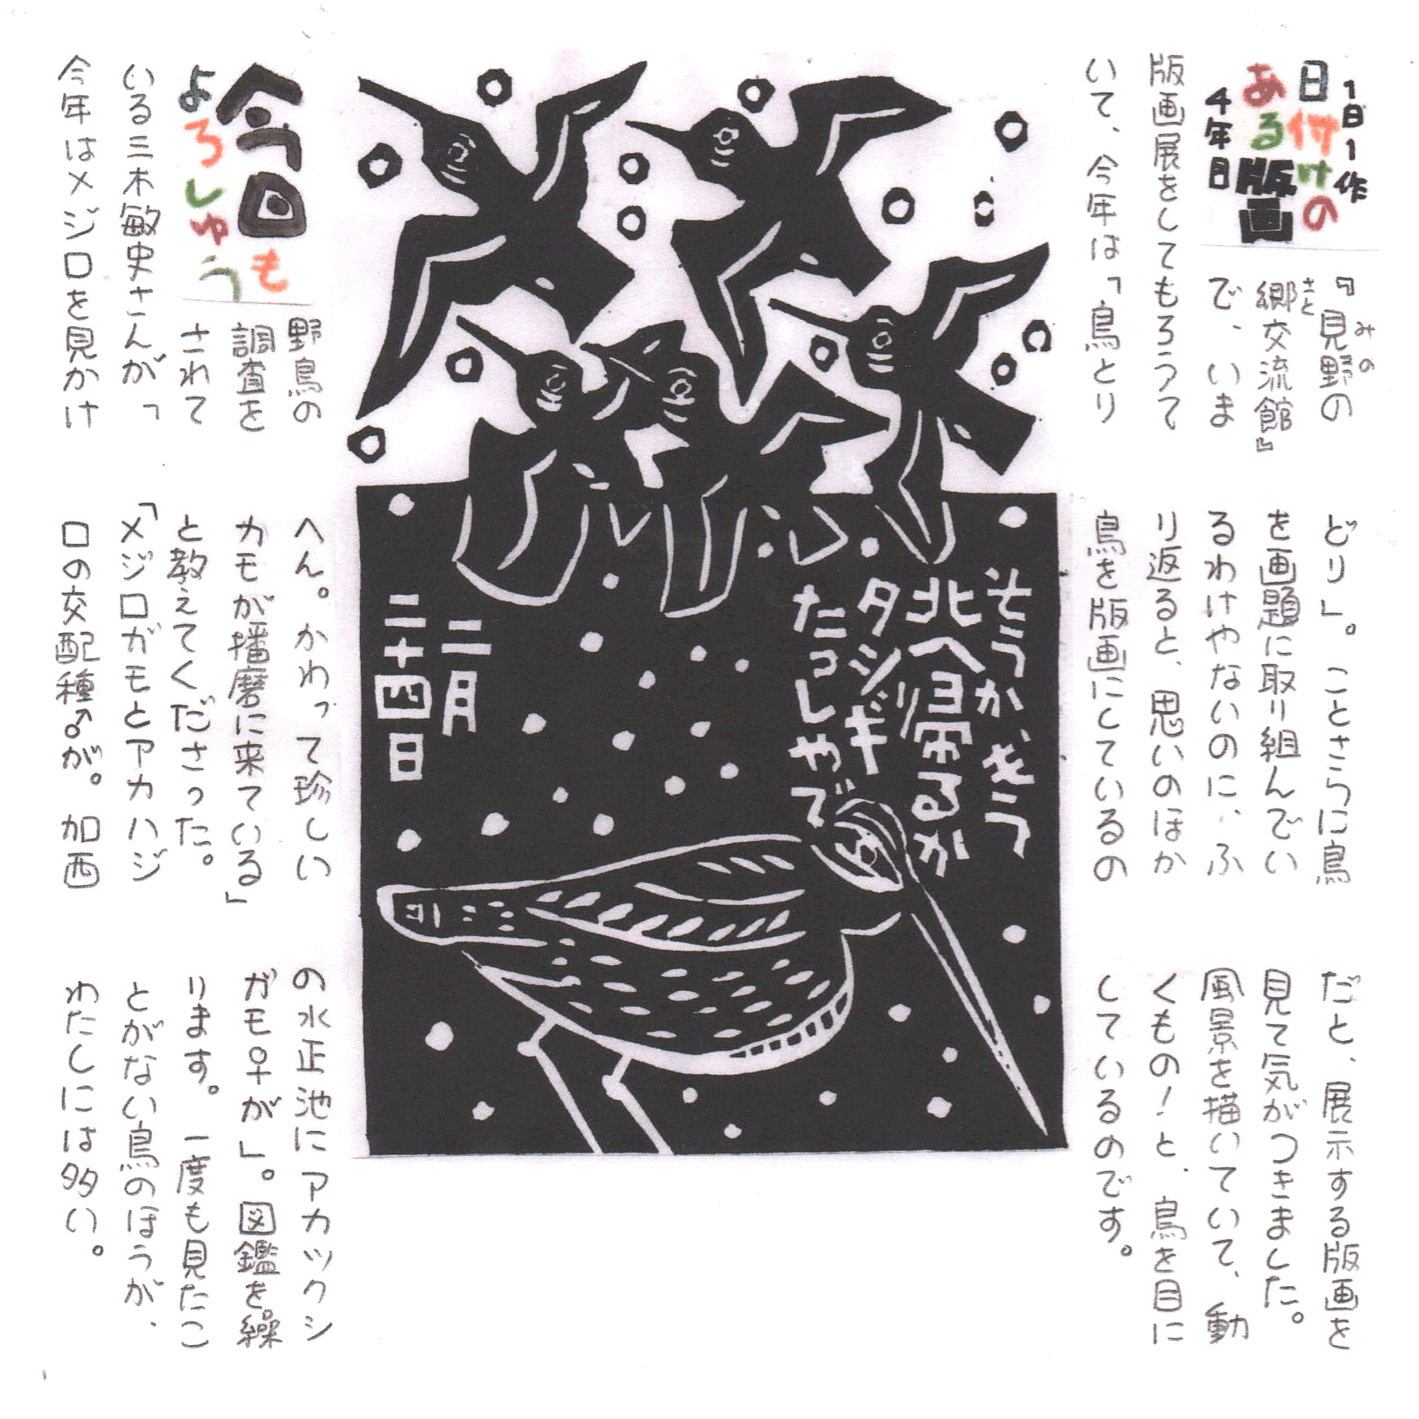 1日1作
日付けの
ある版画
4年目
『見野の
みの
郷交流館』
さと
で、いま
版画展をしてもろうて
いて、今年は「鳥とり
どり」。ことさらに鳥
を画題に取り組んでい
るわけやないのに、ふ
り返ると、思いのほか
鳥を版画にしているの
だと、展示する版画を
見て気がつきました。
風景を描いていて、動
くもの！と、鳥を目に
しているのです。
そうかそう
北へ帰るか
タシギ
たっしゃで
二月
二十四日
今日も
よろしゅう
野鳥の
調査を
されて
いる三木敏史さんが、「
今年はメジロを見かけ
へん。かわって珍しい
カモが播磨に来ている」
と教えてくださった。
「メジロガモとアカハジ
ロの交配種♂が。加西
の水正池にアカツクシ
ガモ♀が」。図鑑を繰
ります。一度も見たこ
とがない鳥のほうが、
わたしには多い。